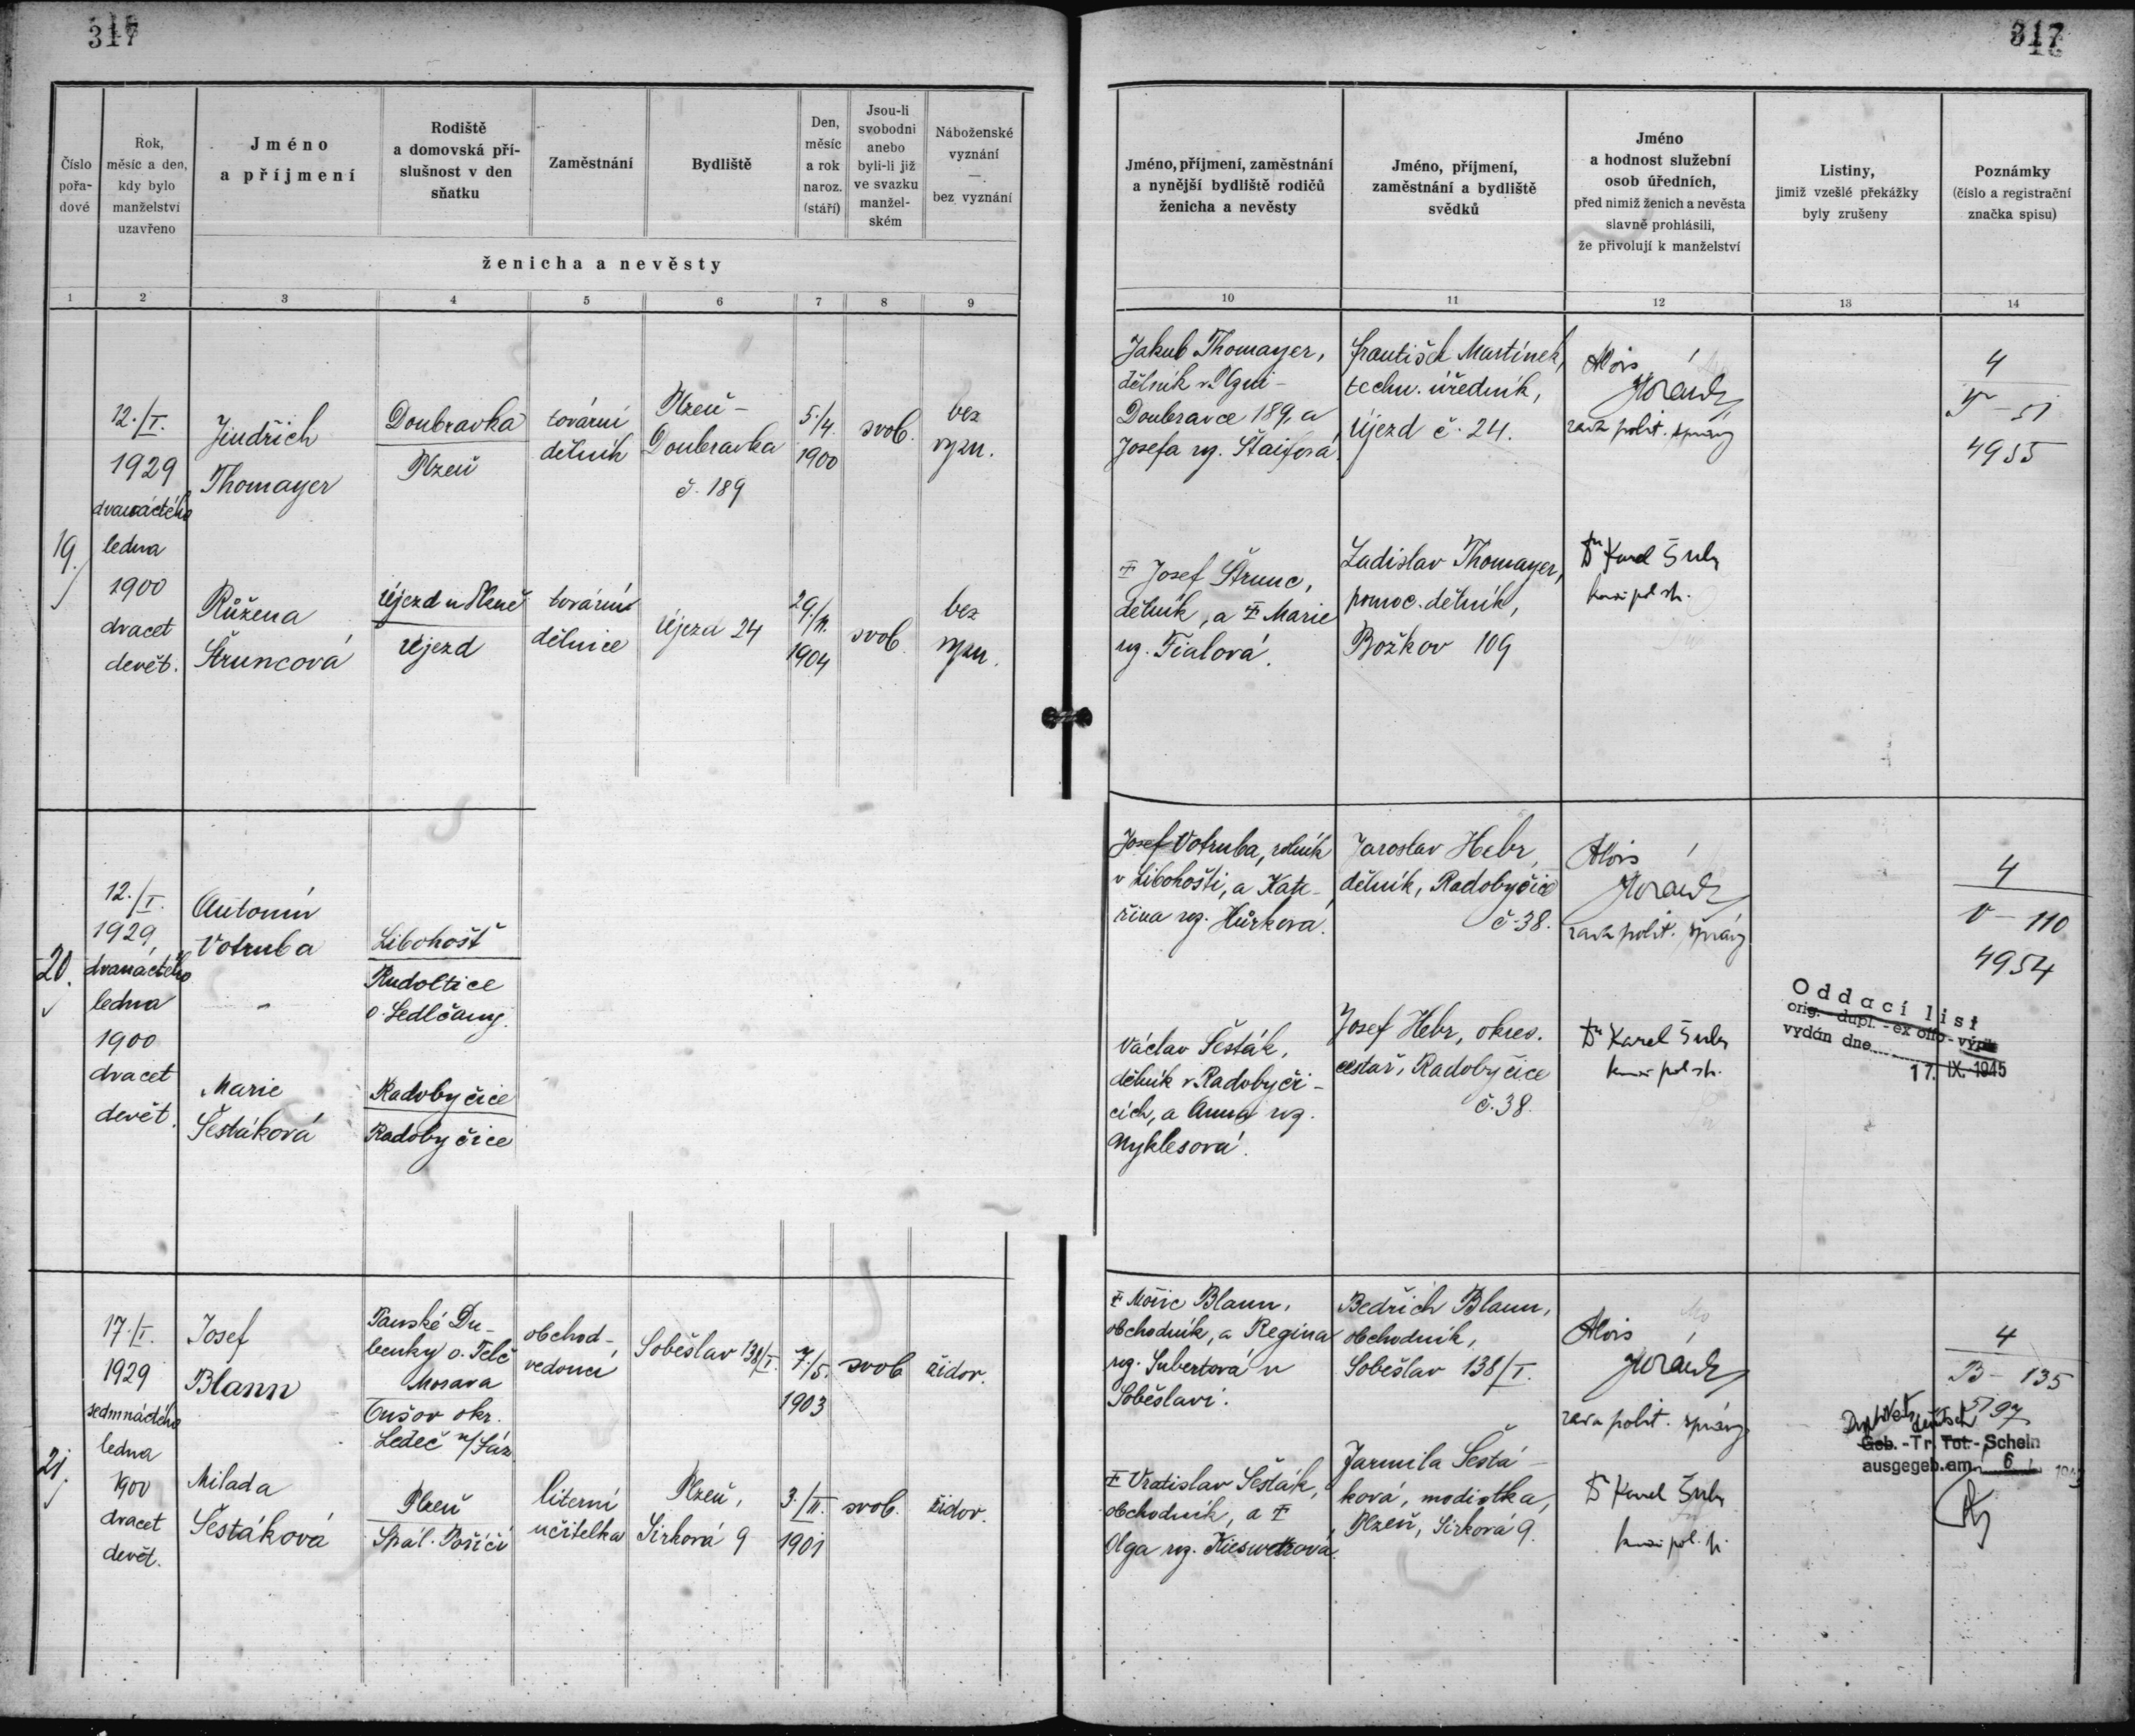 317
317
Číslo
pořa-
dové
Rok,
měsíc a den,
kdy bylo
manželství
uzavřeno
Jméno
a příjmení
Rodiště
a domovská pří-
slušnost v den
sňatku
Zaměstnání
Bydliště
Den,
měsíc
a rok
naroz.
(stáří)
Jsou-li
svobodni
anebo
byli-li již
ve svazku
manžel-
ském
Náboženské
vyznání
—
bez vyznání
ženicha a nevěsty
Jméno, příjmení, zaměstnání
a nynější bydliště rodičů
ženicha a nevěsty
Jméno, příjmení,
zaměstnání a bydliště
svědků
Jméno
a hodnost služební
osob úředních,
před nimiž ženich a nevěsta
slavně prohlásili,
že přivolují k manželství
Listiny,
jimiž vzešlé překážky
byly zrušeny
Poznámky
(číslo a registrační
značka spisu)
1 2 3 4 5 6 7 8 9
10 11 12 13 14
19.
12./I.
1929
dvanáctého
ledna
1900
dvacet
devět.
Jindřich
Thomayer
Doubravka
Plzeň
tovární
dělník
Plzeň -
Doubravka
č. 189
5./4.
1900
svob.
bez
vyzn.
Růžena
Štruncová
Újezd u Plzně
Újezd
tovární
dělnice
Újezd 24
29./
1904
svob.
bez
vyzn.
Jakub Thomayer,
dělník v Plzni -
Doubravce 189, a
Josefa roz. Štaifová.
František Martínek,
techn. úředník,
Újezd č. 24.
Alois
rada polit. správy
4
51
4955
Ŧ Josef Štrunc,
dělník, a Ŧ Marie
roz. Fialová.
Ladislav Thomayer,
pomoc. dělník,
Božkov 109
Dr Karel Šulc
20.
12./I.
1929,
dvanáctého
ledna
1900
dvacet
devět.
Antonín
Votruba
Libohošť
Rudoltice
o. Sedlčany.
Marie
Šestáková
Radobyčice
Radobyčice
Josef Votruba, rolník
v Libohošti, a Kate-
řina roz. Hůrková.
Jaroslav Hebr,
dělník, Radobyčice
č. 38.
Alois
rada polit. správy
4
V - 110
4954
Oddací list
orig. - dupl. - ex offo - výpis
vydán dne
17. IX. 1945
Václav Šesták,
dělník v Radobyči-
cích, a Anna roz.
Nyklesová.
Josef Hebr, okres.
cestář, Radobyčice
č. 38.
Dr Karel Šulc
21.
17./I.
1929
sedmnáctého
ledna
1900
dvacet
devět.
Josef
Blann
Panské Du-
benky o. Telč
Morava
okr.
Ledeč n/Sáz
obchod-
vedoucí
Soběslav 138/I.
7./5.
1903
svob
židov.
Milada
Šestáková
Plzeň
Spál. Poříčí
literní
učitelka
Plzeň,
Sirková 9
3./II.
1901
svob.
židov.
Ŧ Móric Blann,
obchodník, a Regina
roz. Subertová v
Soběslavi.
Bedřich Blann,
obchodník,
Soběslav 138/I.
Alois
rada polit. správy
4
B - 135
5197
Geb. - Tr. Tot. - Schein
ausgegeb. am 6
Ŧ Vratislav Šesták,
obchodník, a Ŧ
Olga roz. Kieswetrová.
Jarmila Šestá-
ková, modistka,
Plzeň, Sirková 9.
Dr Karel Šulc